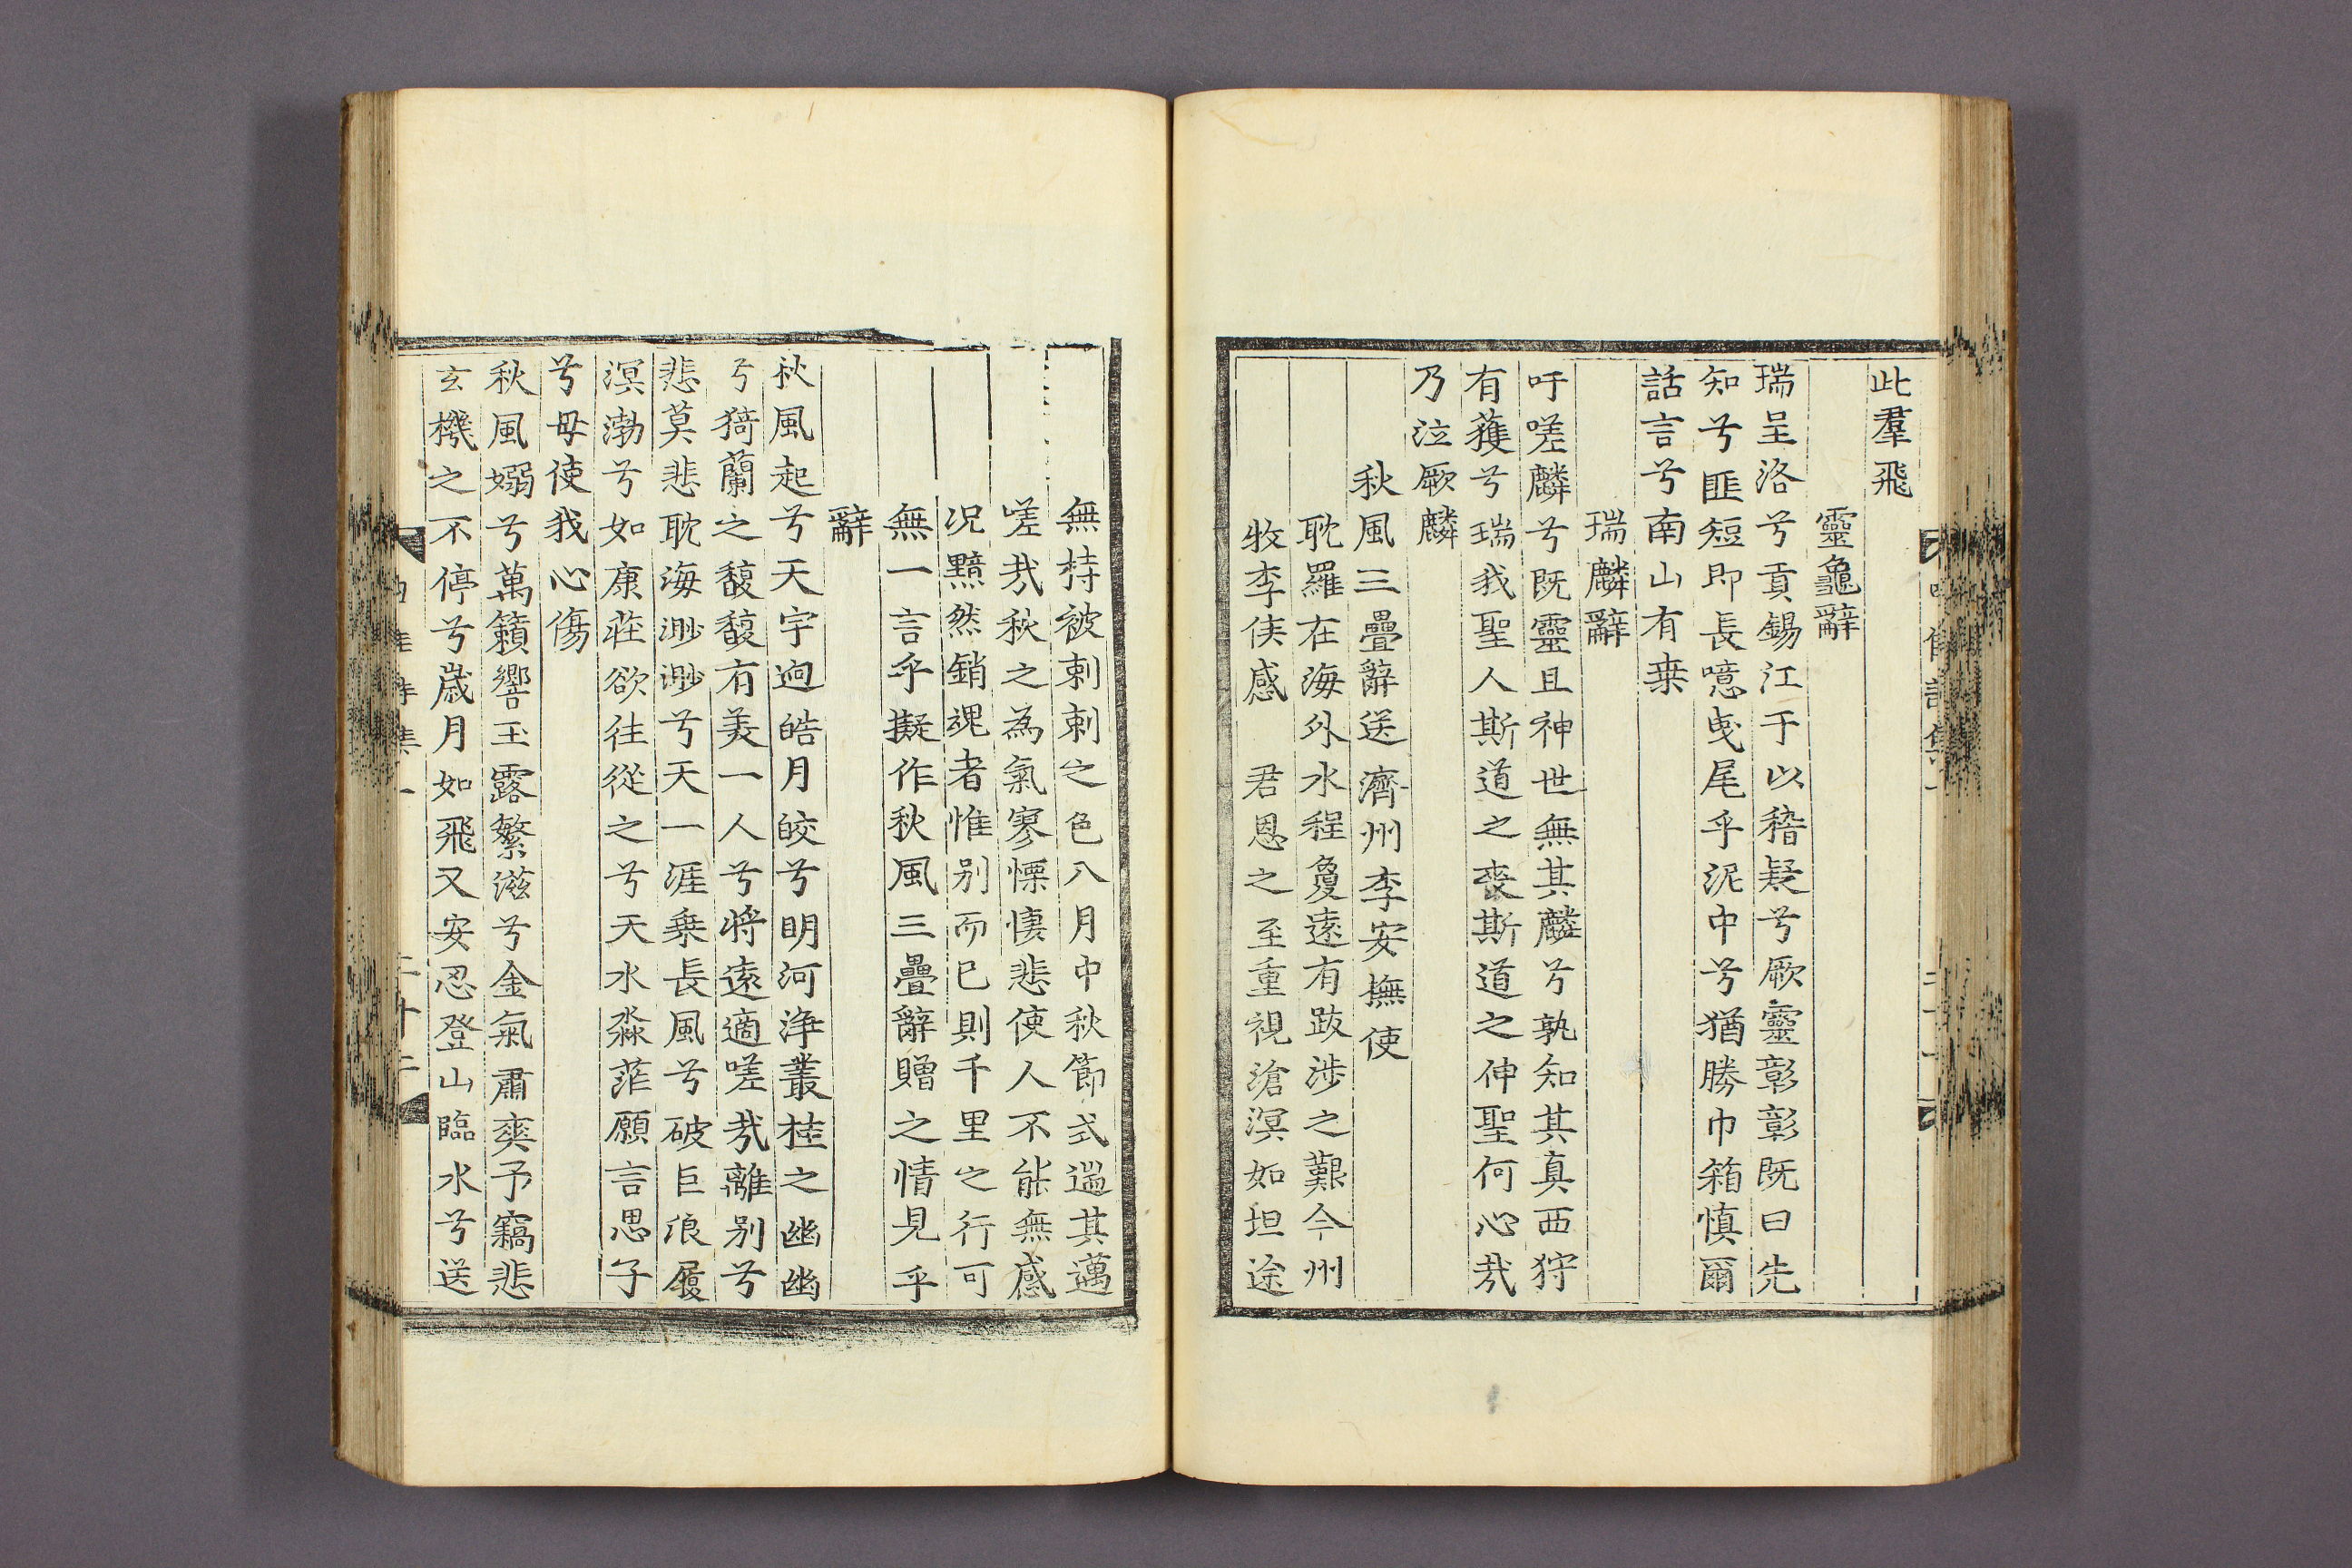 此羣飛
靈龜辭
瑞呈洛兮貢錫江于以稽疑兮厥靈彰彰既曰先
知兮匪短即長噫曳尾乎泥中兮猶勝巾箱慎爾
話言兮南山有桒
瑞麟辭
吁嗟麟兮既靈且神世無其麟兮孰知其真西狩
有獲兮瑞我聖人斯道之喪斯道之伸聖何心㦲
乃泣厥麟
秋風三疊辭送濟州李安撫使
耽羅在海外水程敻遠有跋涉之艱今州
牧李侯感君恩之至重視滄溟如坦途
無持被刺刺之色八月中秋節式遄其邁
嗟㦲秋之為氣寥慄悽悲使人不能無感
况黯然銷魂者惟别而已則千里之行可
無一言乎擬作秋風三疊辭贈之情見乎
辭
秋風起兮天宇逈皓月皎兮明河浄叢桂之幽幽
兮猗蘭之馥馥有美一人兮将遠適嗟㦲離别兮
悲莫悲耽海渺渺兮天一涯乗長風兮破巨浪履
溟渤兮如康莊欲往從之兮天水淼茫願言思子
兮毋使我心傷
秋風嫋兮萬籟響玉露繁滋兮金氣肅爽予竊悲
玄機之不停兮歲月如飛又安忍登山臨水兮送
二十二